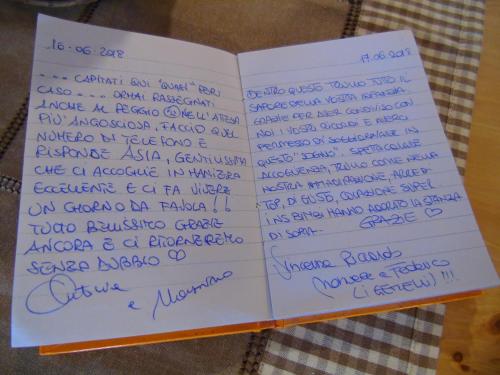 16-06-2018
... CAPITATI QUI "QUASI" PER
CASO ... ORMAI RASSEGNATI
ANCHE AL PEGGIO NELL'ATTESA
PIU' ANGOSCIOSA, FACCIO QUEL
NUMERO DI TELEFONO E
RISPONDE ASIA, GENTILISSIMA
CHE CI ACCOGLIE IN MANIERA
ECCELLENTE E CI FA VIVERE
UN GIORNO DA FAVOLA!!
TUTTO BELLISSIMO GRAZIE
ANCORA E CI RITORNEREMO
SENZA DUBBIO ♡
e Massimo
17-06-2018
DENTRO QUESTO TRULLO TUTTO IL
SAPORE DELLA VOSTRA
GRAZIE PER AVER CONDIVISO CON
NOI I VOSTRI RICORDI E AVERCI
PERMESSO DI SOGGIORNARE IN
QUESTO "SOGNO". SPETTACOLARE
ACCOGLIENZA, TRULLO COME NELLA
NOSTRA IMMAGINAZIONE, ARREDA-
TO, DI GUSTO, COLAZIONE SUPER
I NS BIMBI HANNO ADORATO LA STANZA
DI SOPRA.
GRAZIE ♡
e Federico
(I GEMELLI) !!!